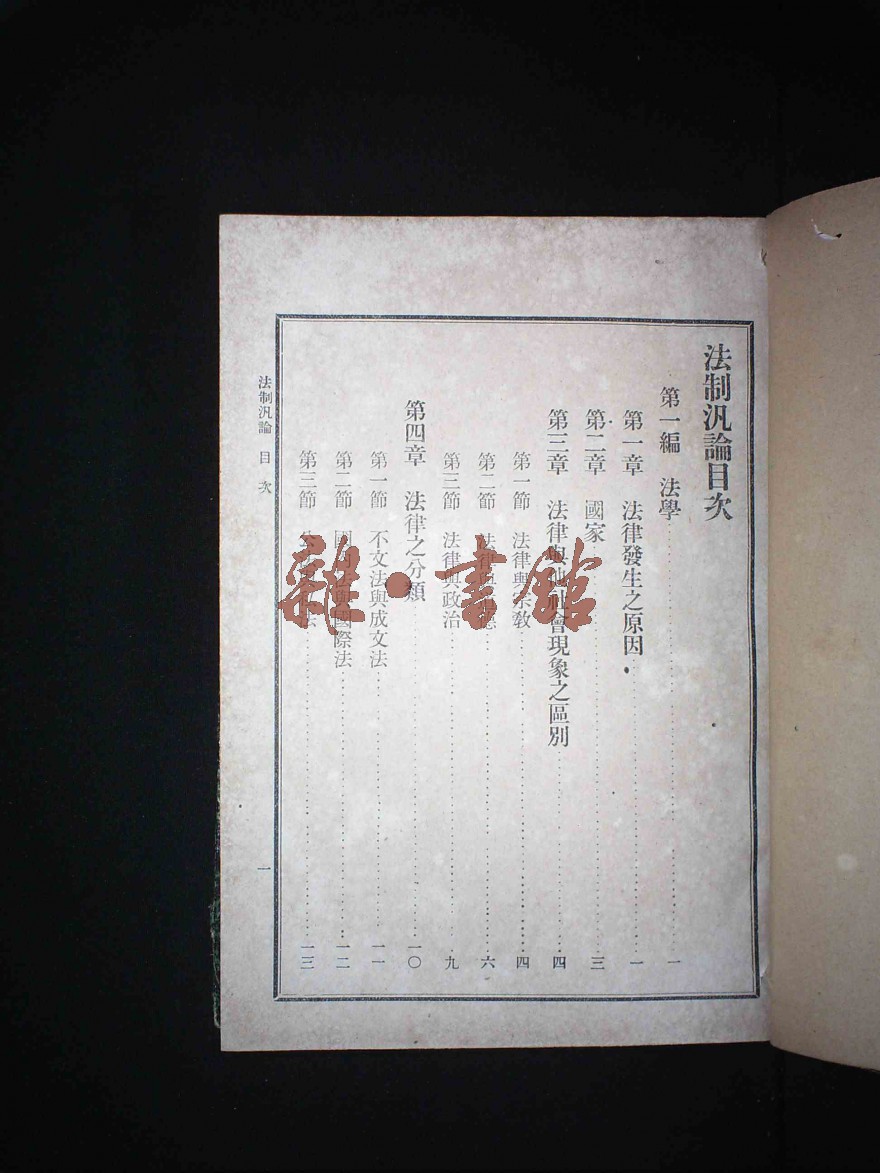 法制汎論目次
第一編　法學………一
第一章　法律發生之原因………一
第二章　國家………三
第三章　法律與他社會現象之區別………四
第一節　法律與宗教………四
第二節　法律與道德………六
第三節　法律與政治………九
第四章　法律之分類………一〇
第一節　不文法與成文法………一一
第二節　國內法與國際法………一二
第三節　公法與私法………一三
法制汎論　目次　一
雜·書館